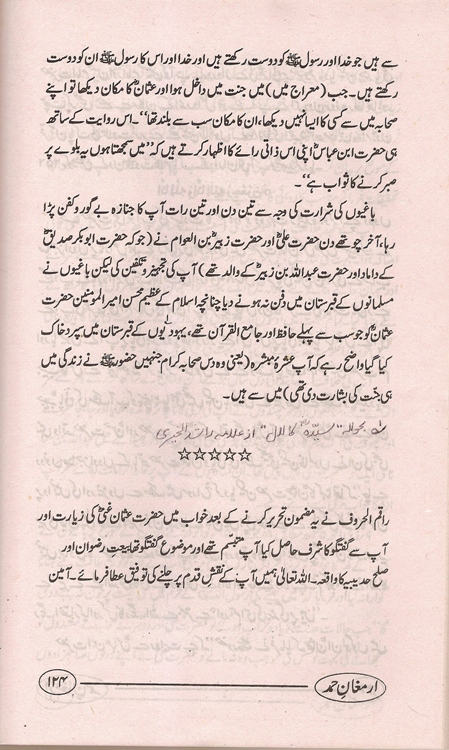 سے ہیں جو خدا اور رسول ﷺ کو دوست رکھتے ہیں اور خدا اور اس کا رسول ﷺ ان کو دوست
رکھتے ہیں۔ جب (معراج میں) میں جنت میں داخل ہوا اور عثمانؓ کا مکان دیکھا تو اپنے
صحابہ میں سے کسی کا ایسا نہیں دیکھا، ان کا مکان سب سے بلند تھا‘‘۔ اس روایت کے ساتھ
ہی حضرت ابن عباسؓ اپنی اس ذاتی رائے کا اظہار کرتے ہیں کہ ’’میں سمجھتا ہوں یہ بلوے پر
صبر کرنے کا ثواب ہے‘‘۔
باغیوں کی شرارت کی وجہ سے تین دن اور تین رات آپ کا جنازہ بے گور و کفن پڑا
رہا، آخر چوتھے دن حضرت علیؓ اور حضرت زبیرؓ بن العوام نے (جو کہ حضرت ابوبکر صدیقؓ
کے داماد اور حضرت عبداللہ بن زبیرؓ کے والد تھے) آپ کی تجہیز و تکفین کی لیکن باغیوں نے
مسلمانوں کے قبرستان میں دفن نہ ہونے دیا چنانچہ اسلام کے عظیم محسن امیر المومنین حضرت
عثمانؓ کو جو سب سے پہلے حافظ اور جامع القرآن تھے، یہودیوں کے قبرستان میں سپرد خاک
کیا گیا واضح رہے کہ آپ عشرۂ مبشرہ (یعنی وہ دس صحابہ کرام جنہیں حضور ﷺ نے زندگی میں
ہی جنت کی بشارت دی تھی) میں سے ہیں۔
بحوالہ "سیدہؓ کا لال" از علامہ راشد الخیری
☆☆☆☆☆
راقم الحروف نے یہ مضمون تحریر کرنے کے بعد خواب میں حضرت عثمان غنیؓ کی زیارت اور
آپ سے گفتگو کا شرف حاصل کیا آپ متبسّم تھے اور موضوع گفتگو تھا بیعت رضوان اور
صلح حدیبیہ کا واقعہ۔ اللہ تعالیٰ ہمیں آپ کے نقش قدم پر چلنے کی توفیق عطا فرمائے۔ آمین
ارمغانِ حمد
۱۲۴